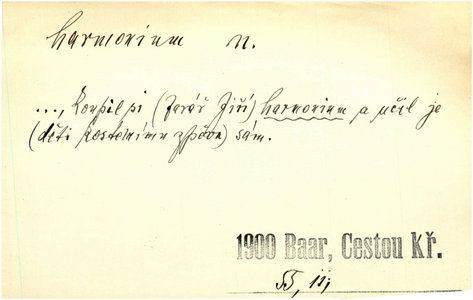 harmonium n.
..., koupil si (farář Jiří) harmonium a učil je
(děti kostelnímu zpěvu) sám.
1900 Baar, Cestou Kř.
55, ii;